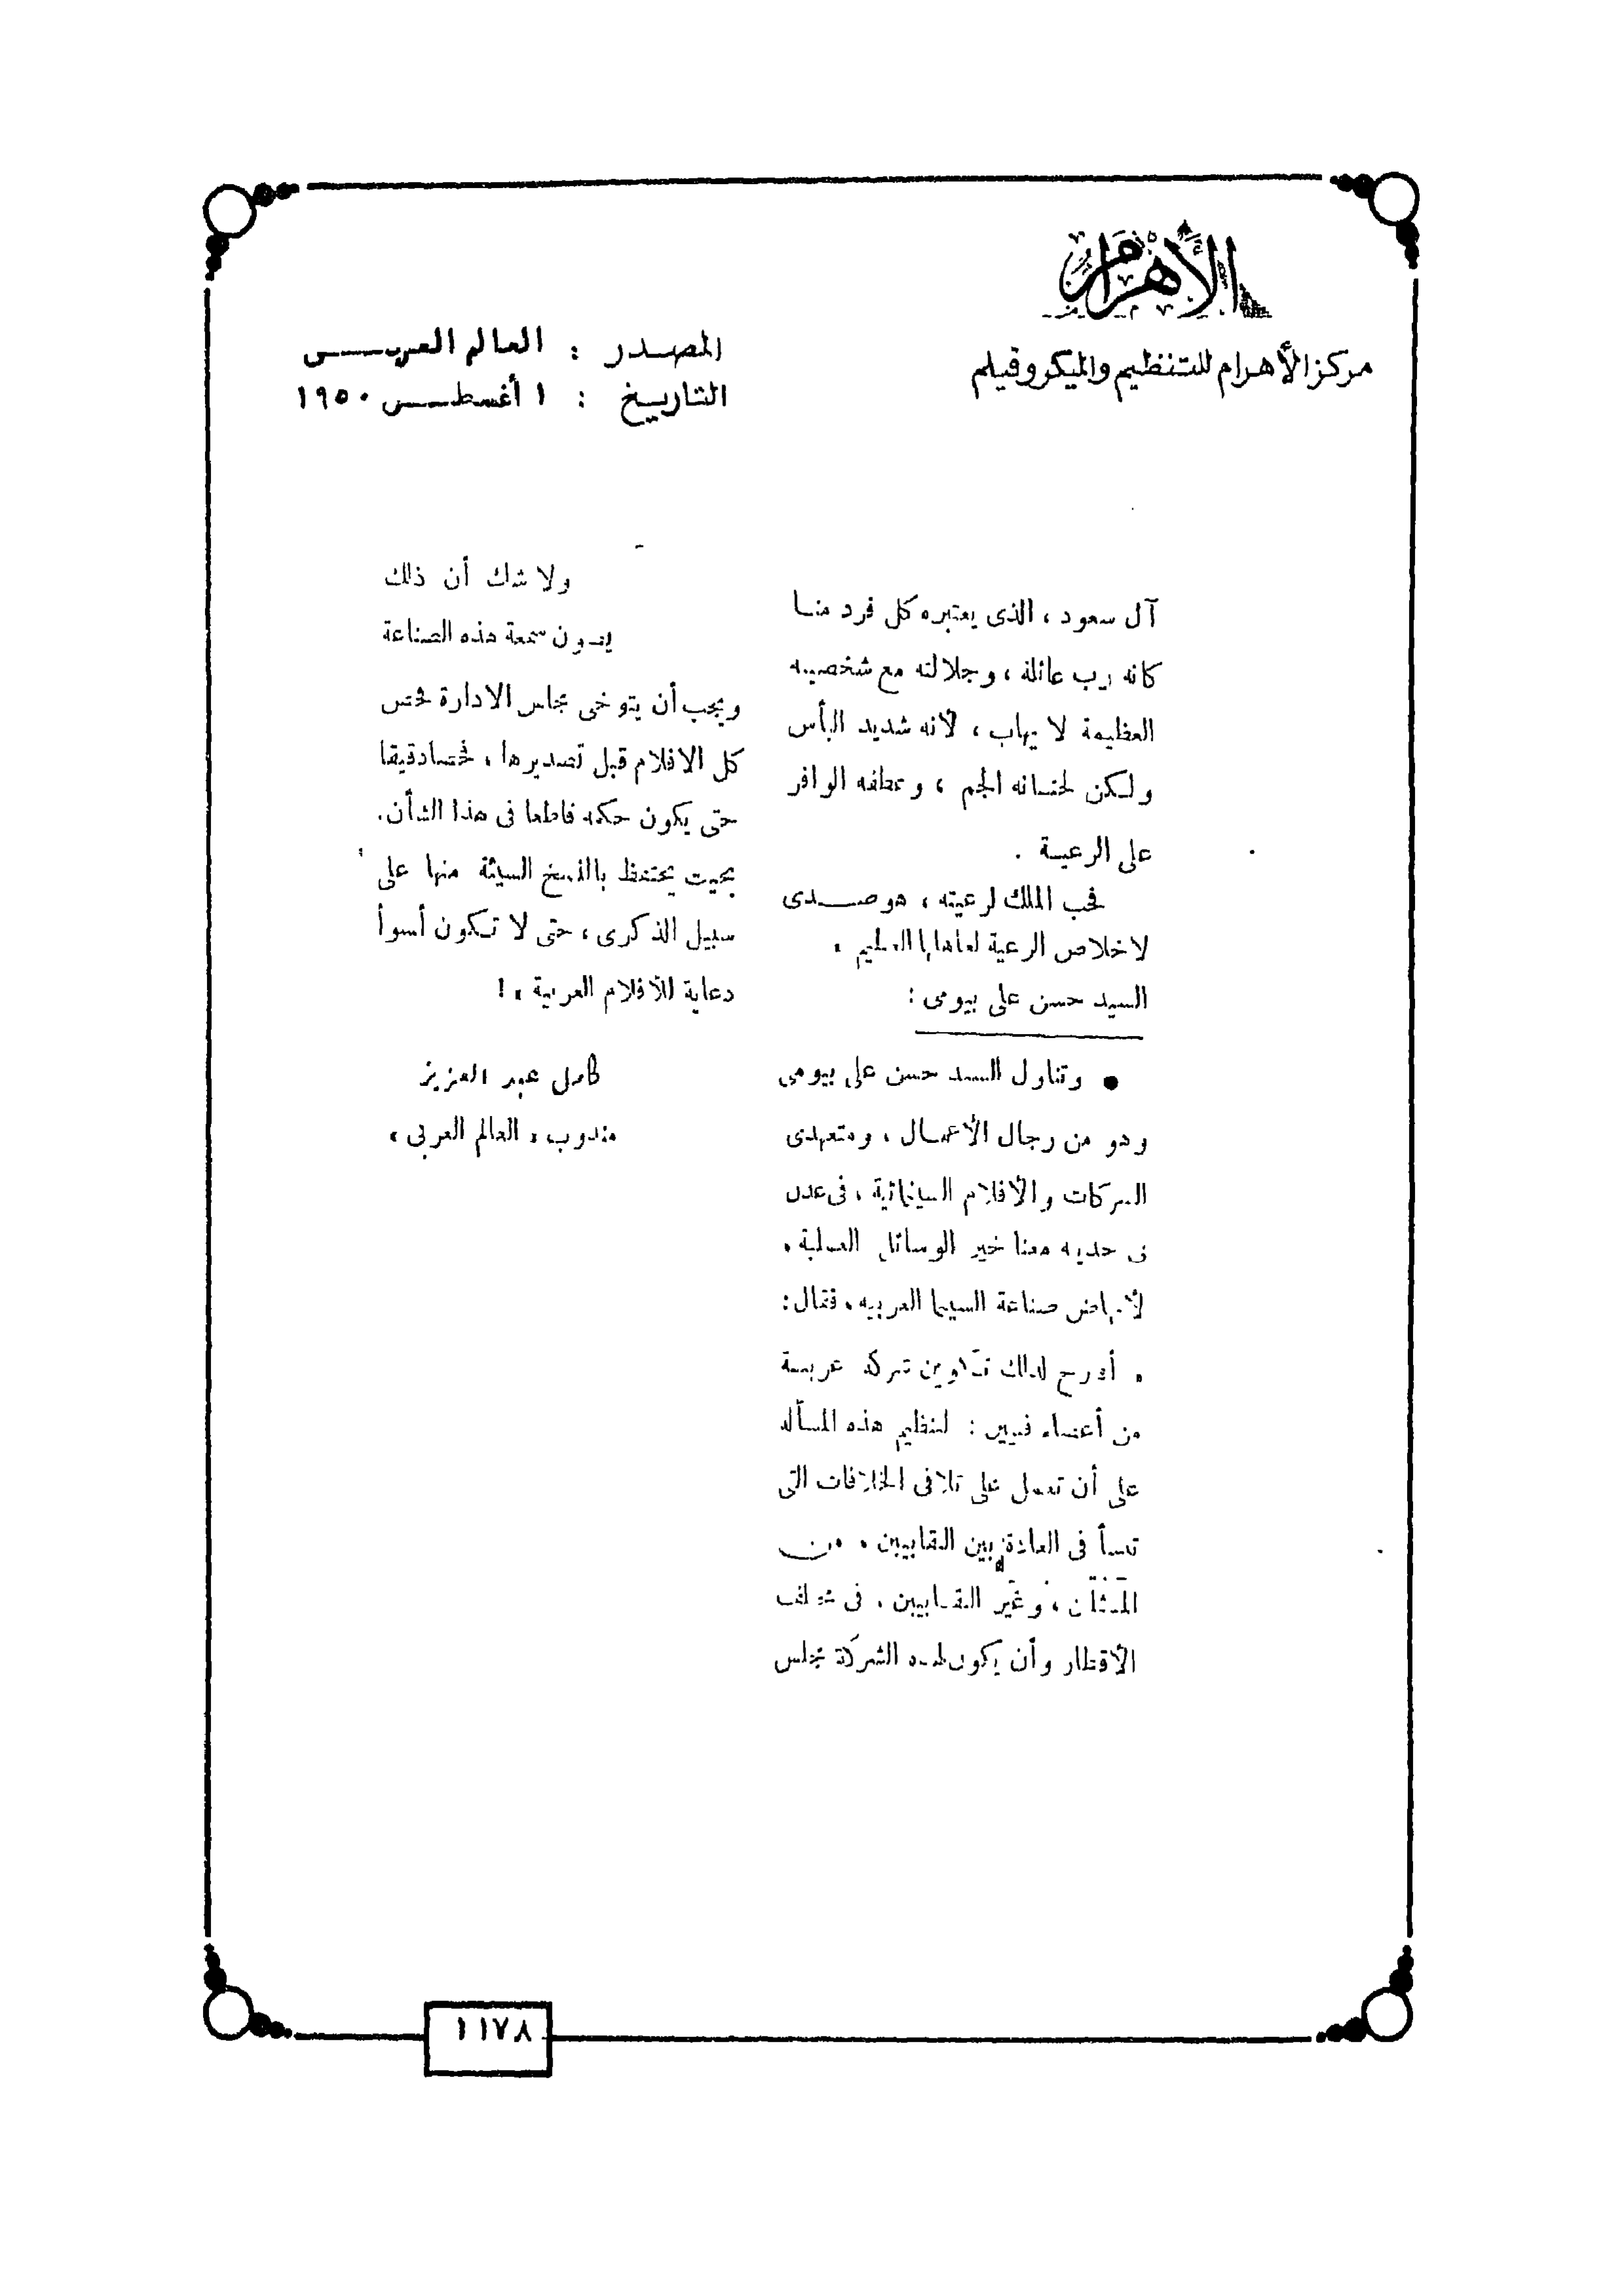 الأهرام
مركز الأهرام للتنظيم والميكروفيلم
المصدر : العالم العربى
التاريخ : ١ أغسطس ١٩٥٠
آل سعود ، الذى يعتبره كل فرد منا
كانه رب عائلة ، وجلالته مع شخصيته
العظيمة لا يهاب ، لأنه شديد البأس
ولكن لحنانه الجم ، وعطفه الوافر
على الرعية .
فحب الملك لرعيته ، هو صدى
لاخلاص الرعية لعاهلها العظيم .
السيد حسن على بيومى :
● وتناول السيد حسن على بيومى
وهو من رجال الأعمال ، ومتعهدى
الشركات والأفلام السينمائية ، فى عدن
فى حديثه معنا خير الوسائل العملية ،
صناعة السينما العربية ، فقال :
« أقترح لذلك تكوين شركة عربية
من أعضاء فنيين : لتنظيم هذه المسألة
على أن تعمل على تلافى الخلافات التى
تنشأ فى العادة بين النقابيين ، من
الممثلين ، وغير النقابيين ، فى مختلف
الأقطار وأن يكون لهذه الشركة مجلس
ولا شك أن ذلك
يصون سمعة هذه الصناعة
ويجب أن يتوخى مجلس الادارة فحص
كل الافلام قبل تصديرها ، فحصا دقيقا
حتى يكون حكمه قاطعا فى هذا الشأن .
بحيث يحتفظ بالنسخ السيئة منها على
سبيل الذكرى ، حتى لا تكون أسوأ
دعاية للأفلام العربية » !
كامل عبد العزيز
مندوب « العالم العربى »
١١٧٨